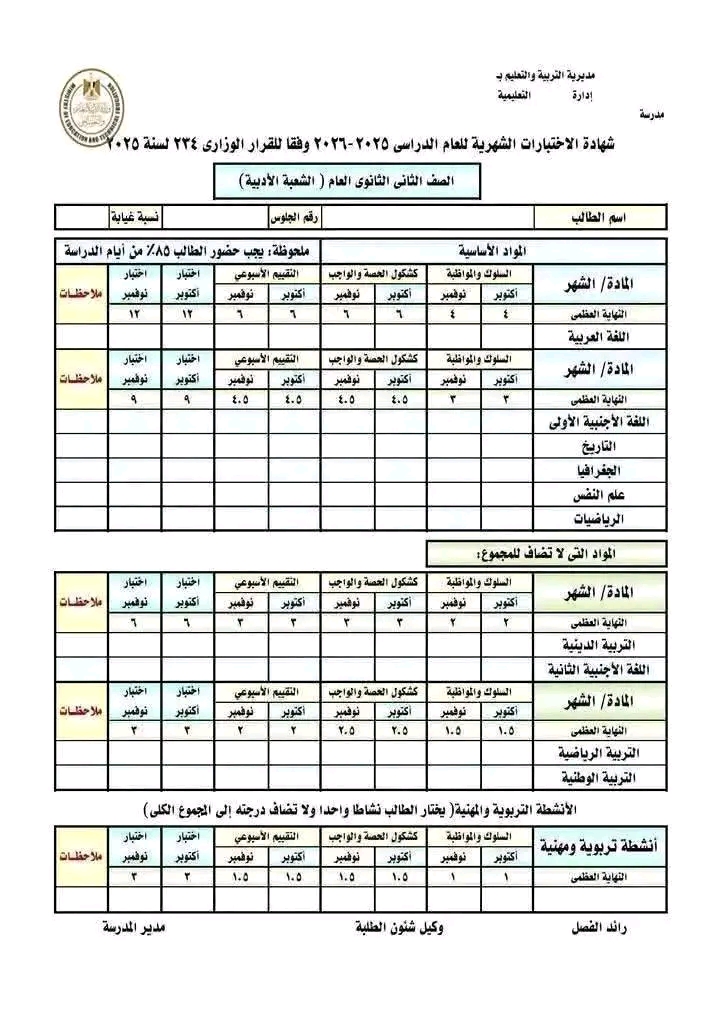 مديرية التربية والتعليم بـ
إدارة التعليمية
مدرسة
شهادة الاختبارات الشهرية للعام الدراسى ٢٠٢٥-٢٠٢٦ وفقا للقرار الوزارى ٢٣٤ لسنة ٢٠٢٥
الصف الثانى الثانوى العام ( الشعبة الأدبية)
اسم الطالب رقم الجلوس نسبة غيابة
المواد الأساسية ملحوظة: يجب حضور الطالب ٨٥٪ من أيام الدراسة
المادة/ الشهر السلوك والمواظبة كشكول الحصة والواجب التقييم الأسبوعي اختبار اختبار ملاحظات
أكتوبر نوفمبر أكتوبر نوفمبر أكتوبر نوفمبر أكتوبر نوفمبر
النهاية العظمى ٤ ٤ ٦ ٦ ٦ ٦ ١٢ ١٢
اللغة العربية
المادة/ الشهر السلوك والمواظبة كشكول الحصة والواجب التقييم الأسبوعي اختبار اختبار ملاحظات
أكتوبر نوفمبر أكتوبر نوفمبر أكتوبر نوفمبر أكتوبر نوفمبر
النهاية العظمى ٣ ٣ ٤.٥ ٤.٥ ٤.٥ ٤.٥ ٩ ٩
اللغة الأجنبية الأولى
التاريخ
الجغرافيا
علم النفس
الرياضيات
المواد التى لا تضاف للمجموع:
المادة/ الشهر السلوك والمواظبة كشكول الحصة والواجب التقييم الأسبوعي اختبار اختبار ملاحظات
أكتوبر نوفمبر أكتوبر نوفمبر أكتوبر نوفمبر أكتوبر نوفمبر
النهاية العظمى ٢ ٢ ٣ ٣ ٣ ٣ ٦ ٦
التربية الدينية
اللغة الأجنبية الثانية
المادة/ الشهر السلوك والمواظبة كشكول الحصة والواجب التقييم الأسبوعي اختبار اختبار ملاحظات
أكتوبر نوفمبر أكتوبر نوفمبر أكتوبر نوفمبر أكتوبر نوفمبر
النهاية العظمى ١.٥ ١.٥ ٢.٥ ٢.٥ ٢ ٢ ٣ ٣
التربية الرياضية
التربية الوطنية
الأنشطة التربوية والمهنية( يختار الطالب نشاطا واحدا ولا تضاف درجته إلى المجموع الكلى)
أنشطة تربوية ومهنية السلوك والمواظبة كشكول الحصة والواجب التقييم الأسبوعي اختبار اختبار ملاحظات
أكتوبر نوفمبر أكتوبر نوفمبر أكتوبر نوفمبر أكتوبر نوفمبر
النهاية العظمى ١ ١ ١.٥ ١.٥ ١.٥ ١.٥ ٣ ٣
رائد الفصل وكيل شئون الطلبة مدير المدرسة